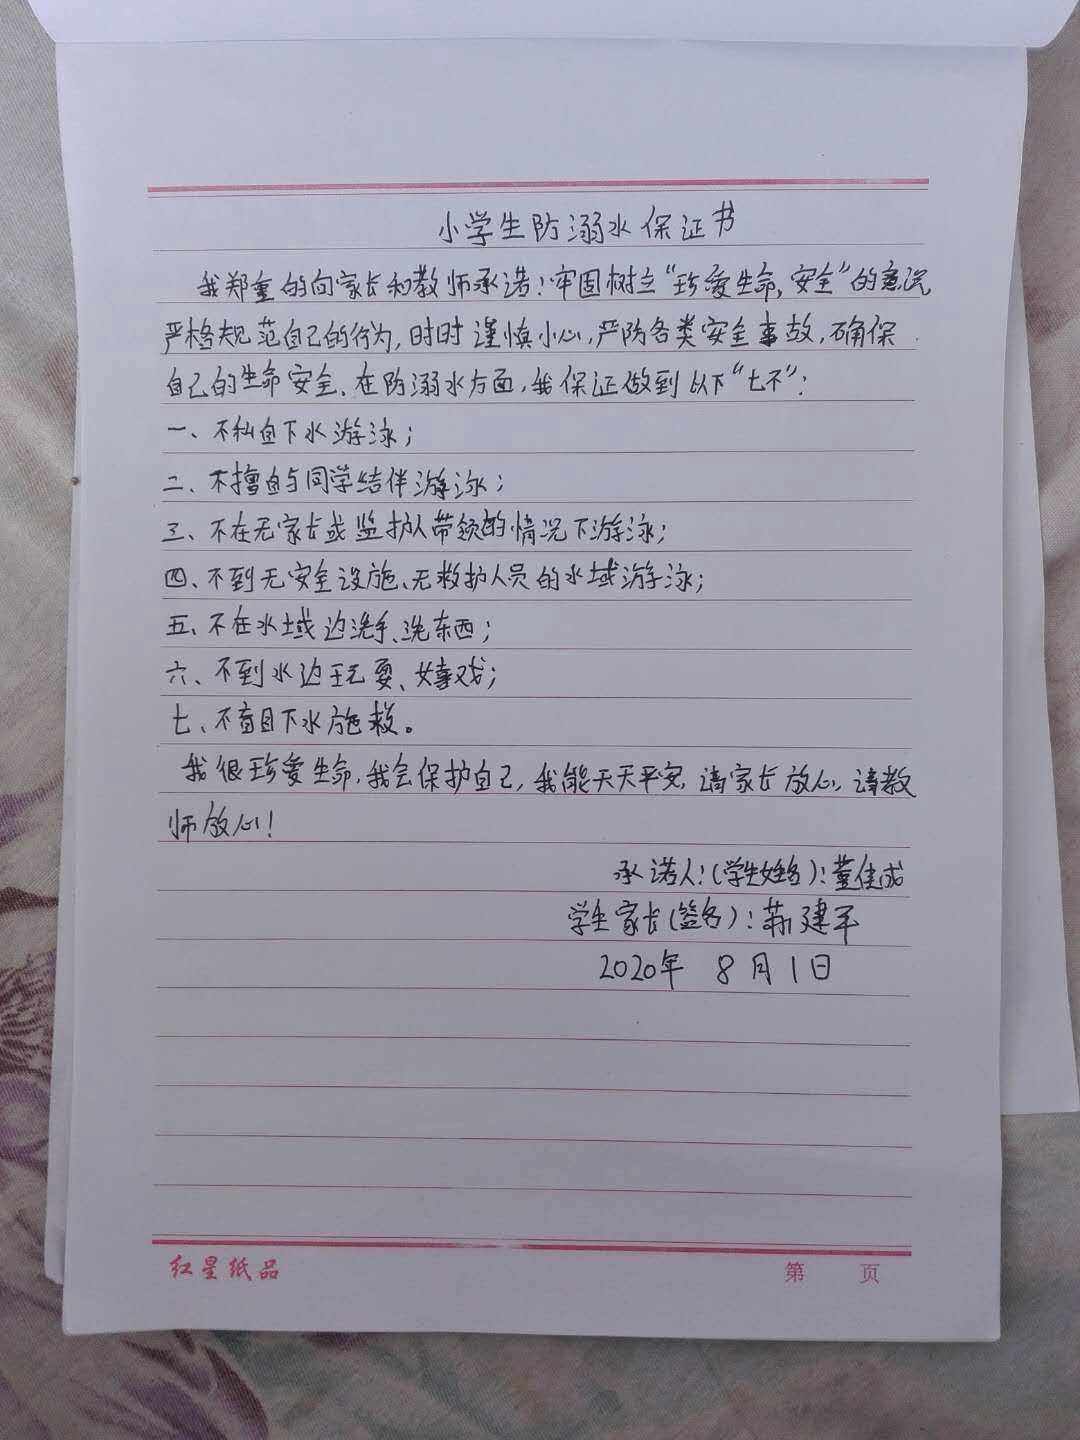 小学生防溺水保证书
我郑重的向家长和教师承诺：牢固树立“珍爱生命，安全”的意识
严格规范自己的行为，时时谨慎小心，严防各类安全事故，确保
自己的生命安全、在防溺水方面，我保证做到以下“七不”：
一、不私自下水游泳；
二、不擅自与同学结伴游泳；
三、不在无家长或监护人带领的情况下游泳；
四、不到无安全设施、无救护人员的水域游泳；
五、不在水域边洗手、洗东西；
六、不到水边玩耍、嬉戏；
七、不盲目下水施救。
我很珍爱生命，我会保护自己，我能天天平安，请家长放心，请教
师放心！
承诺人：（学生姓名）：董佳成
学生家长（签名）：靳建平
2020年 8月1日
红星纸品
第 页